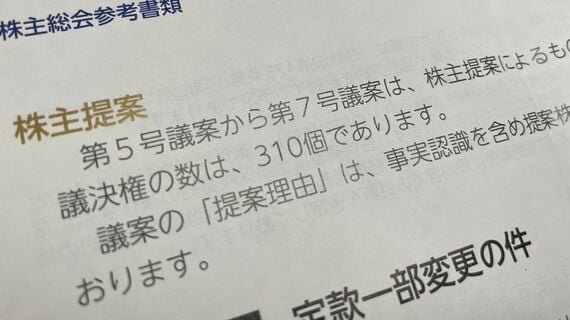 株主総会参考書類
株主提案
第5号議案から第7号議案は、株主提案によるもの
議決権の数は、310個であります。
議案の「提案理由」は、事実認識を含め提案株
おります。
定款一部変更の件